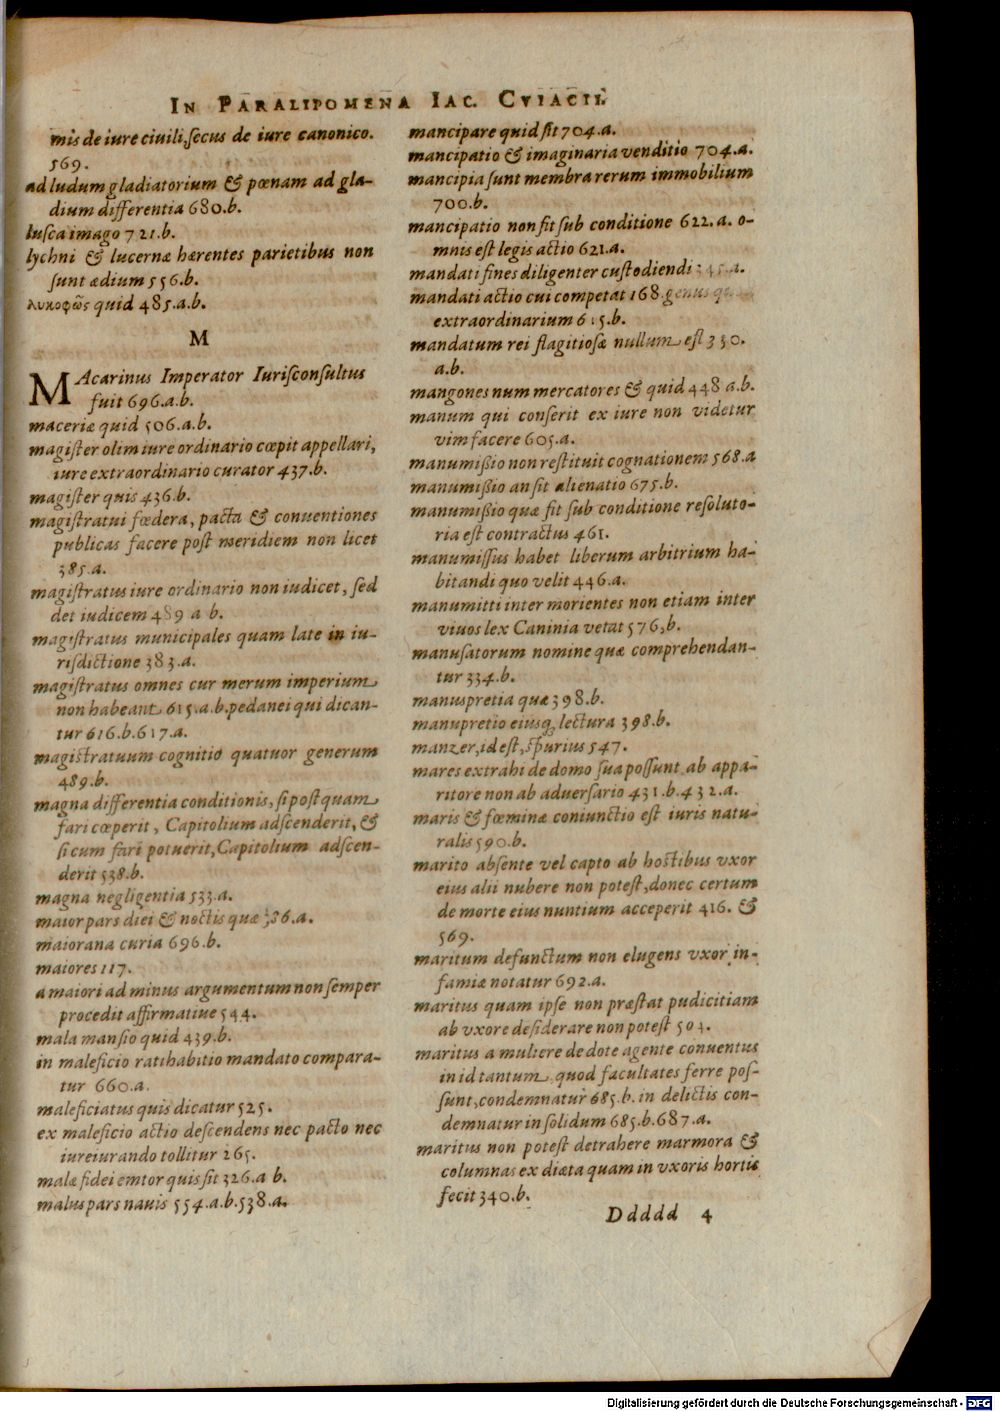 IN PARALIPOMENA IAC. CVIACII.
mis de iure ciuili, secus de iure canonico.
569.
ad ludum gladiatorium & pœnam ad gla-
dium differentia 680.b.
lusca imago 721.b.
lychni & lucernæ hærentes parietibus non
sunt ædium 556.b.
λυκοφῶς quid 485.a.b.
M
MAcarinus Imperator Iurisconsultus
fuit 696.a.b.
maceriæ quid 506.a.b.
magister olim iure ordinario cœpit appellari,
iure extraordinario curator 437.b.
magister quis 436.b.
magistratui fœdera, pacta & conuentiones
publicas facere post meridiem non licet
385.a.
magistratus iure ordinario non iudicet, sed
det iudicem 489 a b.
magistratus municipales quam late in iu-
risdictione 383.a.
magistratus omnes cur merum imperium
non habeant 615.a.b. pedanei qui dican-
tur 616.b.617.a.
magistratuum cognitio quatuor generum
489.b.
magna differentia conditionis, si postquam
fari cœperit, Capitolium adscenderit, &
si cum fari potuerit, Capitolium adscen-
derit 538.b.
magna negligentia 533.a.
maior pars diei & noctis quæ 386.a.
maiorana curia 696.b.
maiores 117.
a maiori ad minus argumentum non semper
procedit affirmatiue 544.
mala mansio quid 439.b.
in maleficio ratihabitio mandato compara-
tur 660.a.
maleficiatus quis dicatur 525.
ex maleficio actio descendens nec pacto nec
iureiurando tollitur 265.
malæ fidei emtor quis sit 326.a b.
malus pars nauis 554.a.b.538.a.
mancipare quid sit 704.a.
mancipatio & imaginaria venditio 704.a.
mancipia sunt membra rerum immobilium
700.b.
mancipatio non fit sub conditione 622.a. o-
mnis est legis actio 621.a.
mandati fines diligenter custodiendi 345.a.
mandati actio cui competat 168. genus
extraordinarium 615.b.
mandatum rei flagitiosæ nullum est 330.
a.b.
mangones num mercatores & quid 448 a.b.
manum qui conserit ex iure non videtur
vim facere 605.a.
manumißio non restituit cognationem 568.a
manumißio an sit alienatio 675.b.
manumißio quæ fit sub conditione resoluto-
ria est contractus 461.
manumissus habet liberum arbitrium ha-
bitandi quo velit 446.a.
manumitti inter morientes non etiam inter
viuos lex Caninia vetat 576,b.
manusatorum nomine quæ comprehendan-
tur 334.b.
manuspretia quæ 398.b.
manupretio eiusq; lectura 398.b.
manzer, id est, spurius 547.
mares extrahi de domo sua possunt ab appa-
ritore non ab aduersario 431.b.432.a.
maris & fœminæ coniunctio est iuris natu-
ralis 590.b.
marito absente vel capto ab hostibus vxor
eius alii nubere non potest, donec certum
de morte eius nuntium acceperit 416. &
569.
maritum defunctum non elugens vxor in-
famiæ notatur 692.a.
maritus quam ipse non præstat pudicitiam
ab vxore desiderare non potest 504.
maritus a muliere de dote agente conuentus
in id tantum quod facultates ferre pos-
sunt, condemnatur 685.b. in delictis con-
demnatur in solidum 685.b.687.a.
maritus non potest detrahere marmora &
columnas ex diæta quam in vxoris hortis
fecit 340.b.
Ddddd 4
Digitalisierung gefördert durch die Deutsche Forschungsgemeinschaft - DFG